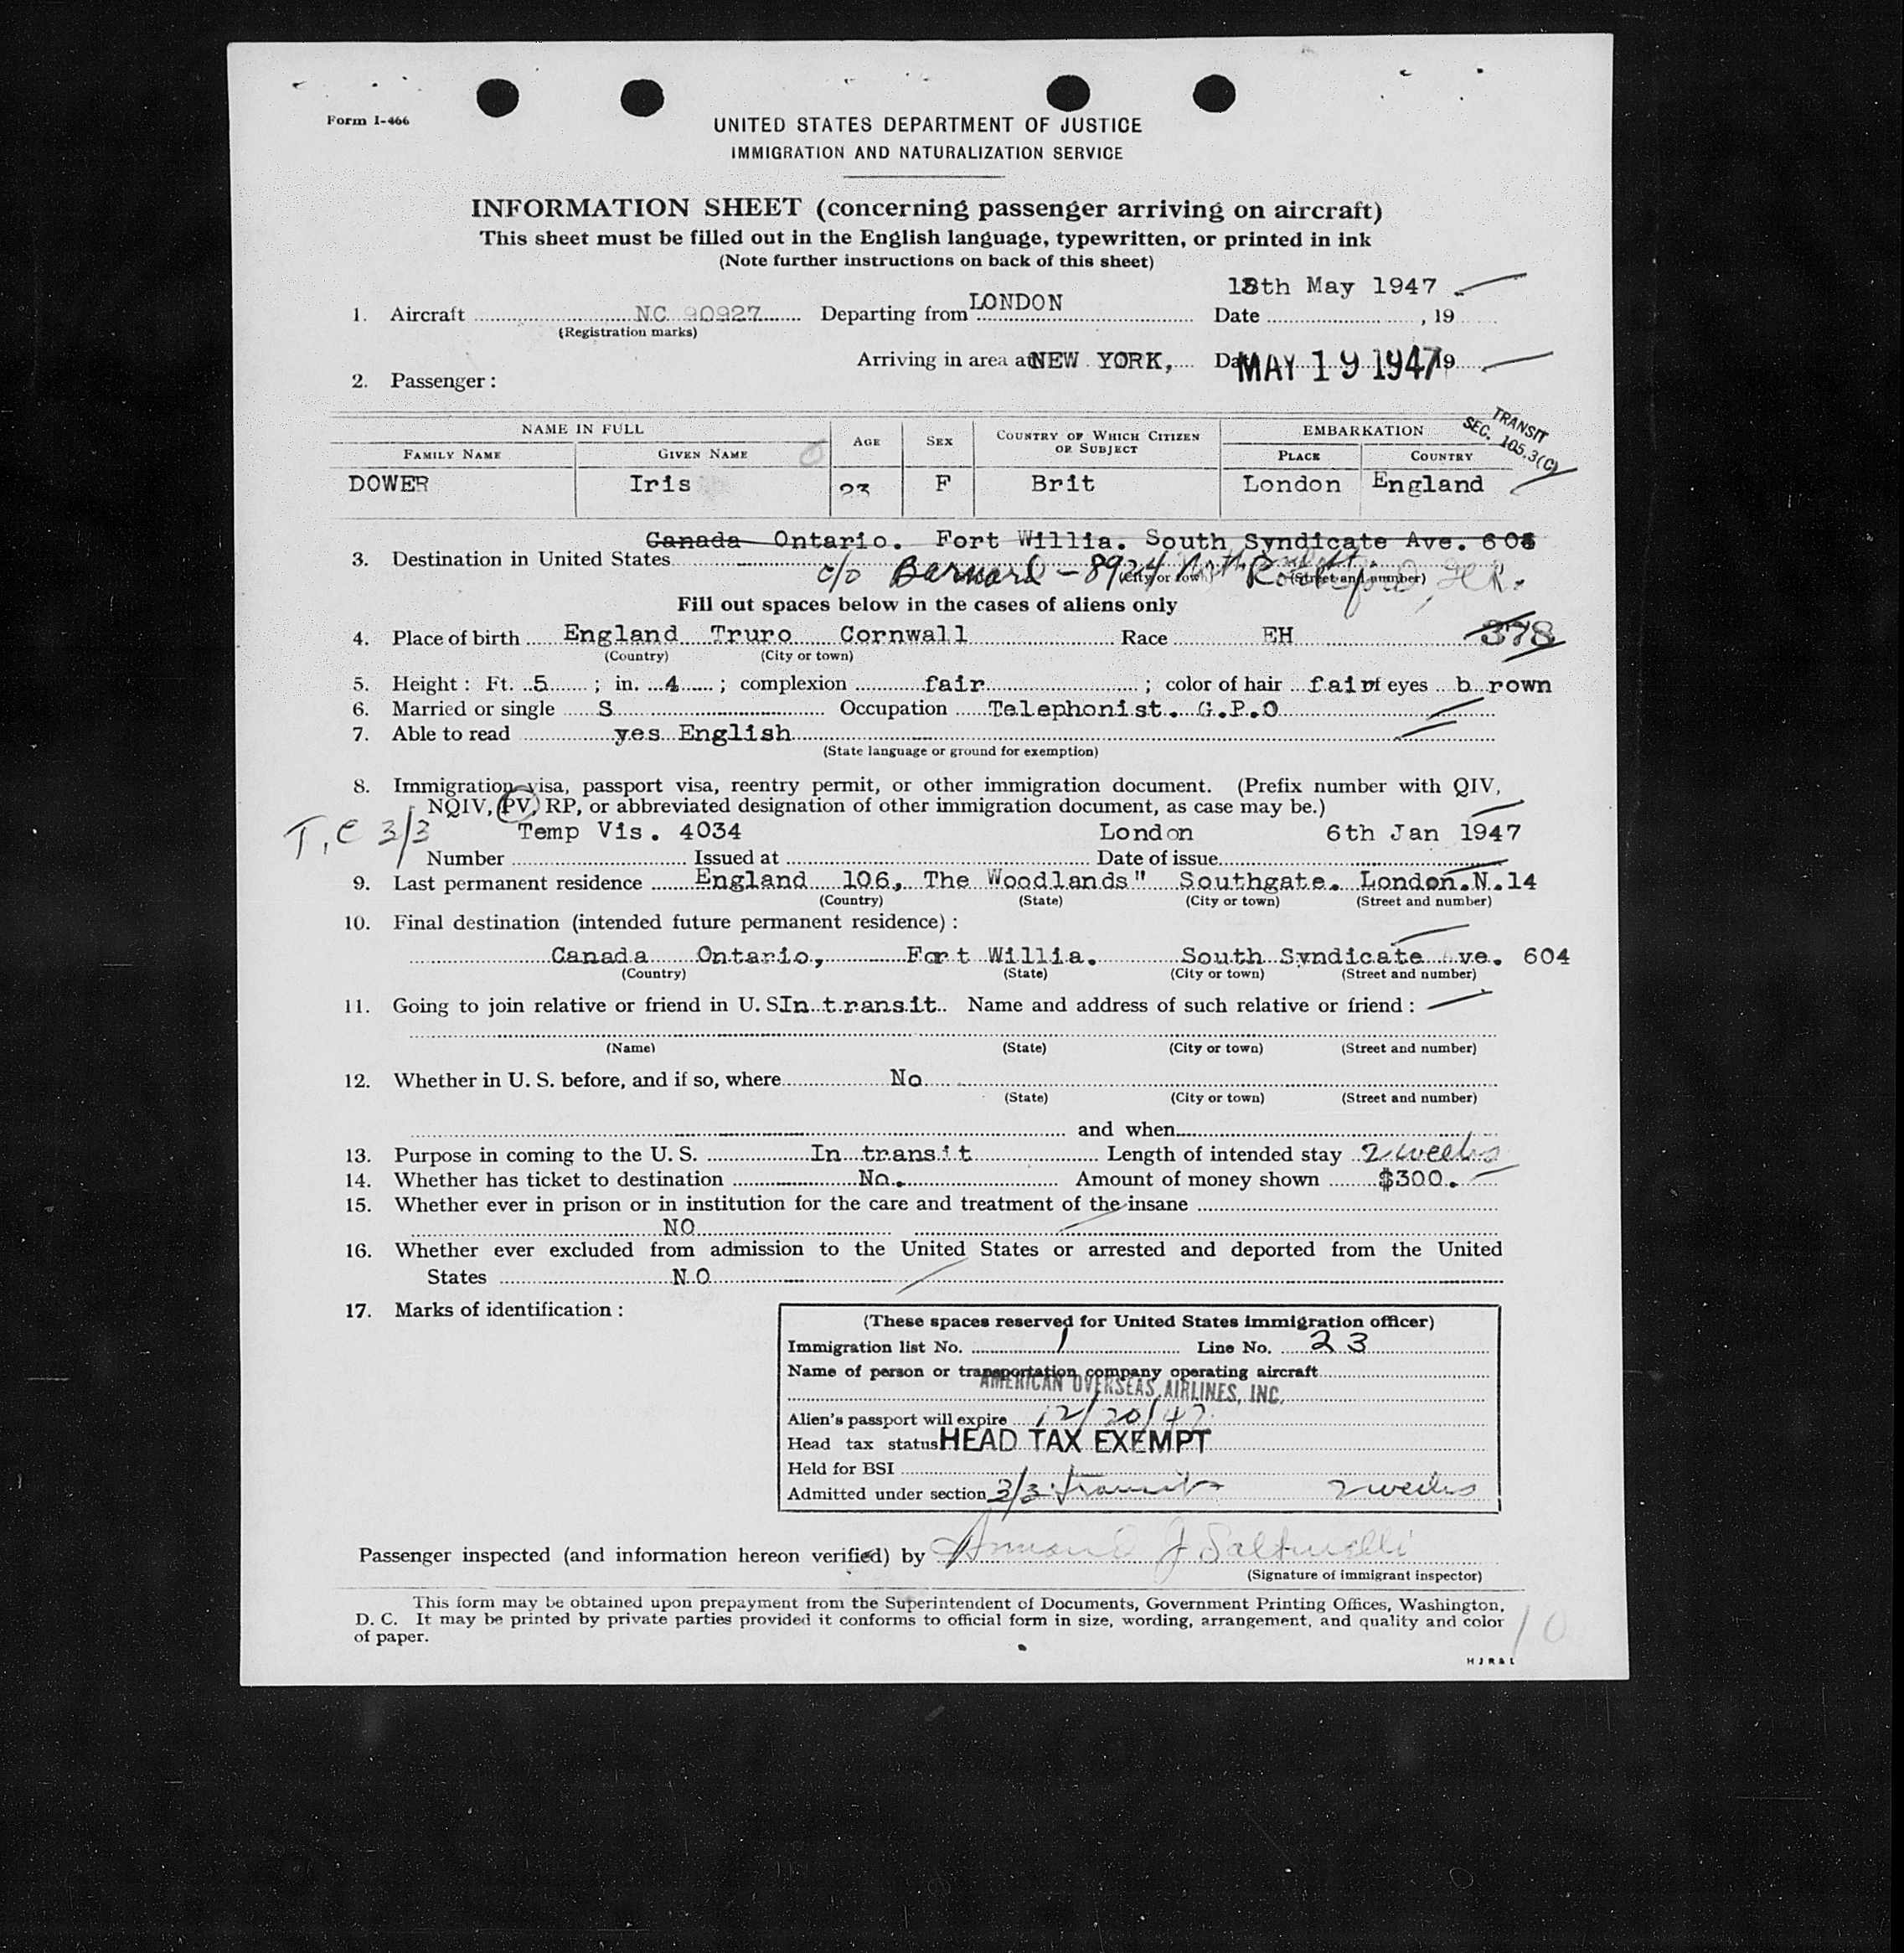 Form I-466
UNITED STATES DEPARTMENT OF JUSTICE
IMMIGRATION AND NATURALIZATION SERVICE
INFORMATION SHEET (concerning passenger arriving on aircraft)
This sheet must be filled out in the English language, typewritten, or printed in ink
(Note further instructions on back of this sheet)
18th May 1947
1. Aircraft NC 90927 Departing from LONDON Date , 19
(Registration marks)
Arriving in area at NEW YORK, Date MAY 19 1947 19
2. Passenger:
TRANSIT
SEC. 105.3(C)
NAME IN FULL AGE SEX COUNTRY OF WHICH CITIZEN OR SUBJECT EMBARKATION
FAMILY NAME GIVEN NAME PLACE COUNTRY
DOWER Iris 23 F Brit London England
Canada Ontario. Fort Willia. South Syndicate Ave. 604
3. Destination in United States
c/o Barnard - 8924 North Rockford, Ill.
(City or town) (Street and number)
Fill out spaces below in the cases of aliens only
4. Place of birth England Truro Cornwall Race EH 378
(Country) (City or town)
5. Height: Ft. 5 ; in. 4 ; complexion fair ; color of hair fair of eyes b rown
6. Married or single S Occupation Telephonist. G.P.O
7. Able to read yes English
(State language or ground for exemption)
8. Immigration visa, passport visa, reentry permit, or other immigration document. (Prefix number with QIV,
NQIV, PV, RP, or abbreviated designation of other immigration document, as case may be.)
T.C 3/3 Temp Vis. 4034 London 6th Jan 1947
Number Issued at Date of issue
9. Last permanent residence England 106, The Woodlands" Southgate. London.N.14
(Country) (State) (City or town) (Street and number)
10. Final destination (intended future permanent residence):
Canada Ontario, Fort Willia. South Syndicate ve. 604
(Country) (State) (City or town) (Street and number)
11. Going to join relative or friend in U. S. In transit Name and address of such relative or friend:
(Name) (State) (City or town) (Street and number)
12. Whether in U. S. before, and if so, where No
(State) (City or town) (Street and number)
and when
13. Purpose in coming to the U. S. In transit Length of intended stay 2 weeks
14. Whether has ticket to destination No. Amount of money shown $300.
15. Whether ever in prison or in institution for the care and treatment of the insane
NO
16. Whether ever excluded from admission to the United States or arrested and deported from the United
States NO
17. Marks of identification:
(These spaces reserved for United States immigration officer)
Immigration list No. 1 Line No. 23
Name of person or transportation company operating aircraft
AMERICAN OVERSEAS AIRLINES, INC.
Alien's passport will expire 12/20/47
Head tax status HEAD TAX EXEMPT
Held for BSI
Admitted under section 3/3 transit 2 weeks
Passenger inspected (and information hereon verified) by
(Signature of immigrant inspector)
This form may be obtained upon prepayment from the Superintendent of Documents, Government Printing Offices, Washington,
D. C. It may be printed by private parties provided it conforms to official form in size, wording, arrangement, and quality and color
of paper.
10
H J R & L